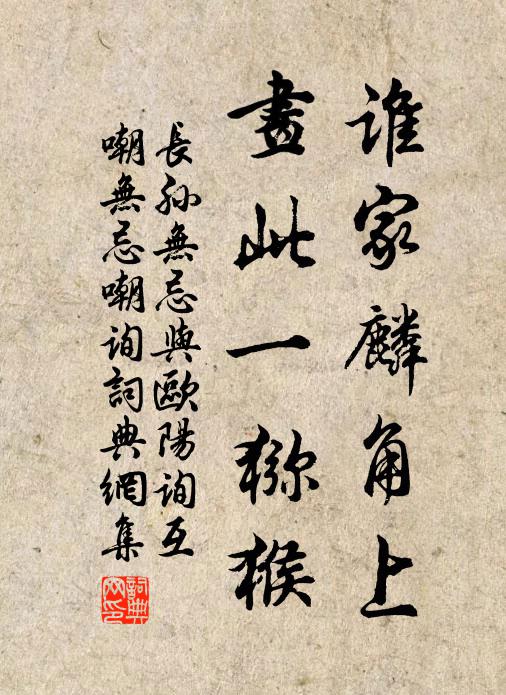 誰家麟角上
畫此一獼猴
長孫無忌與歐陽詢互
嘲無忌嘲詢詞典網集
詞典網印